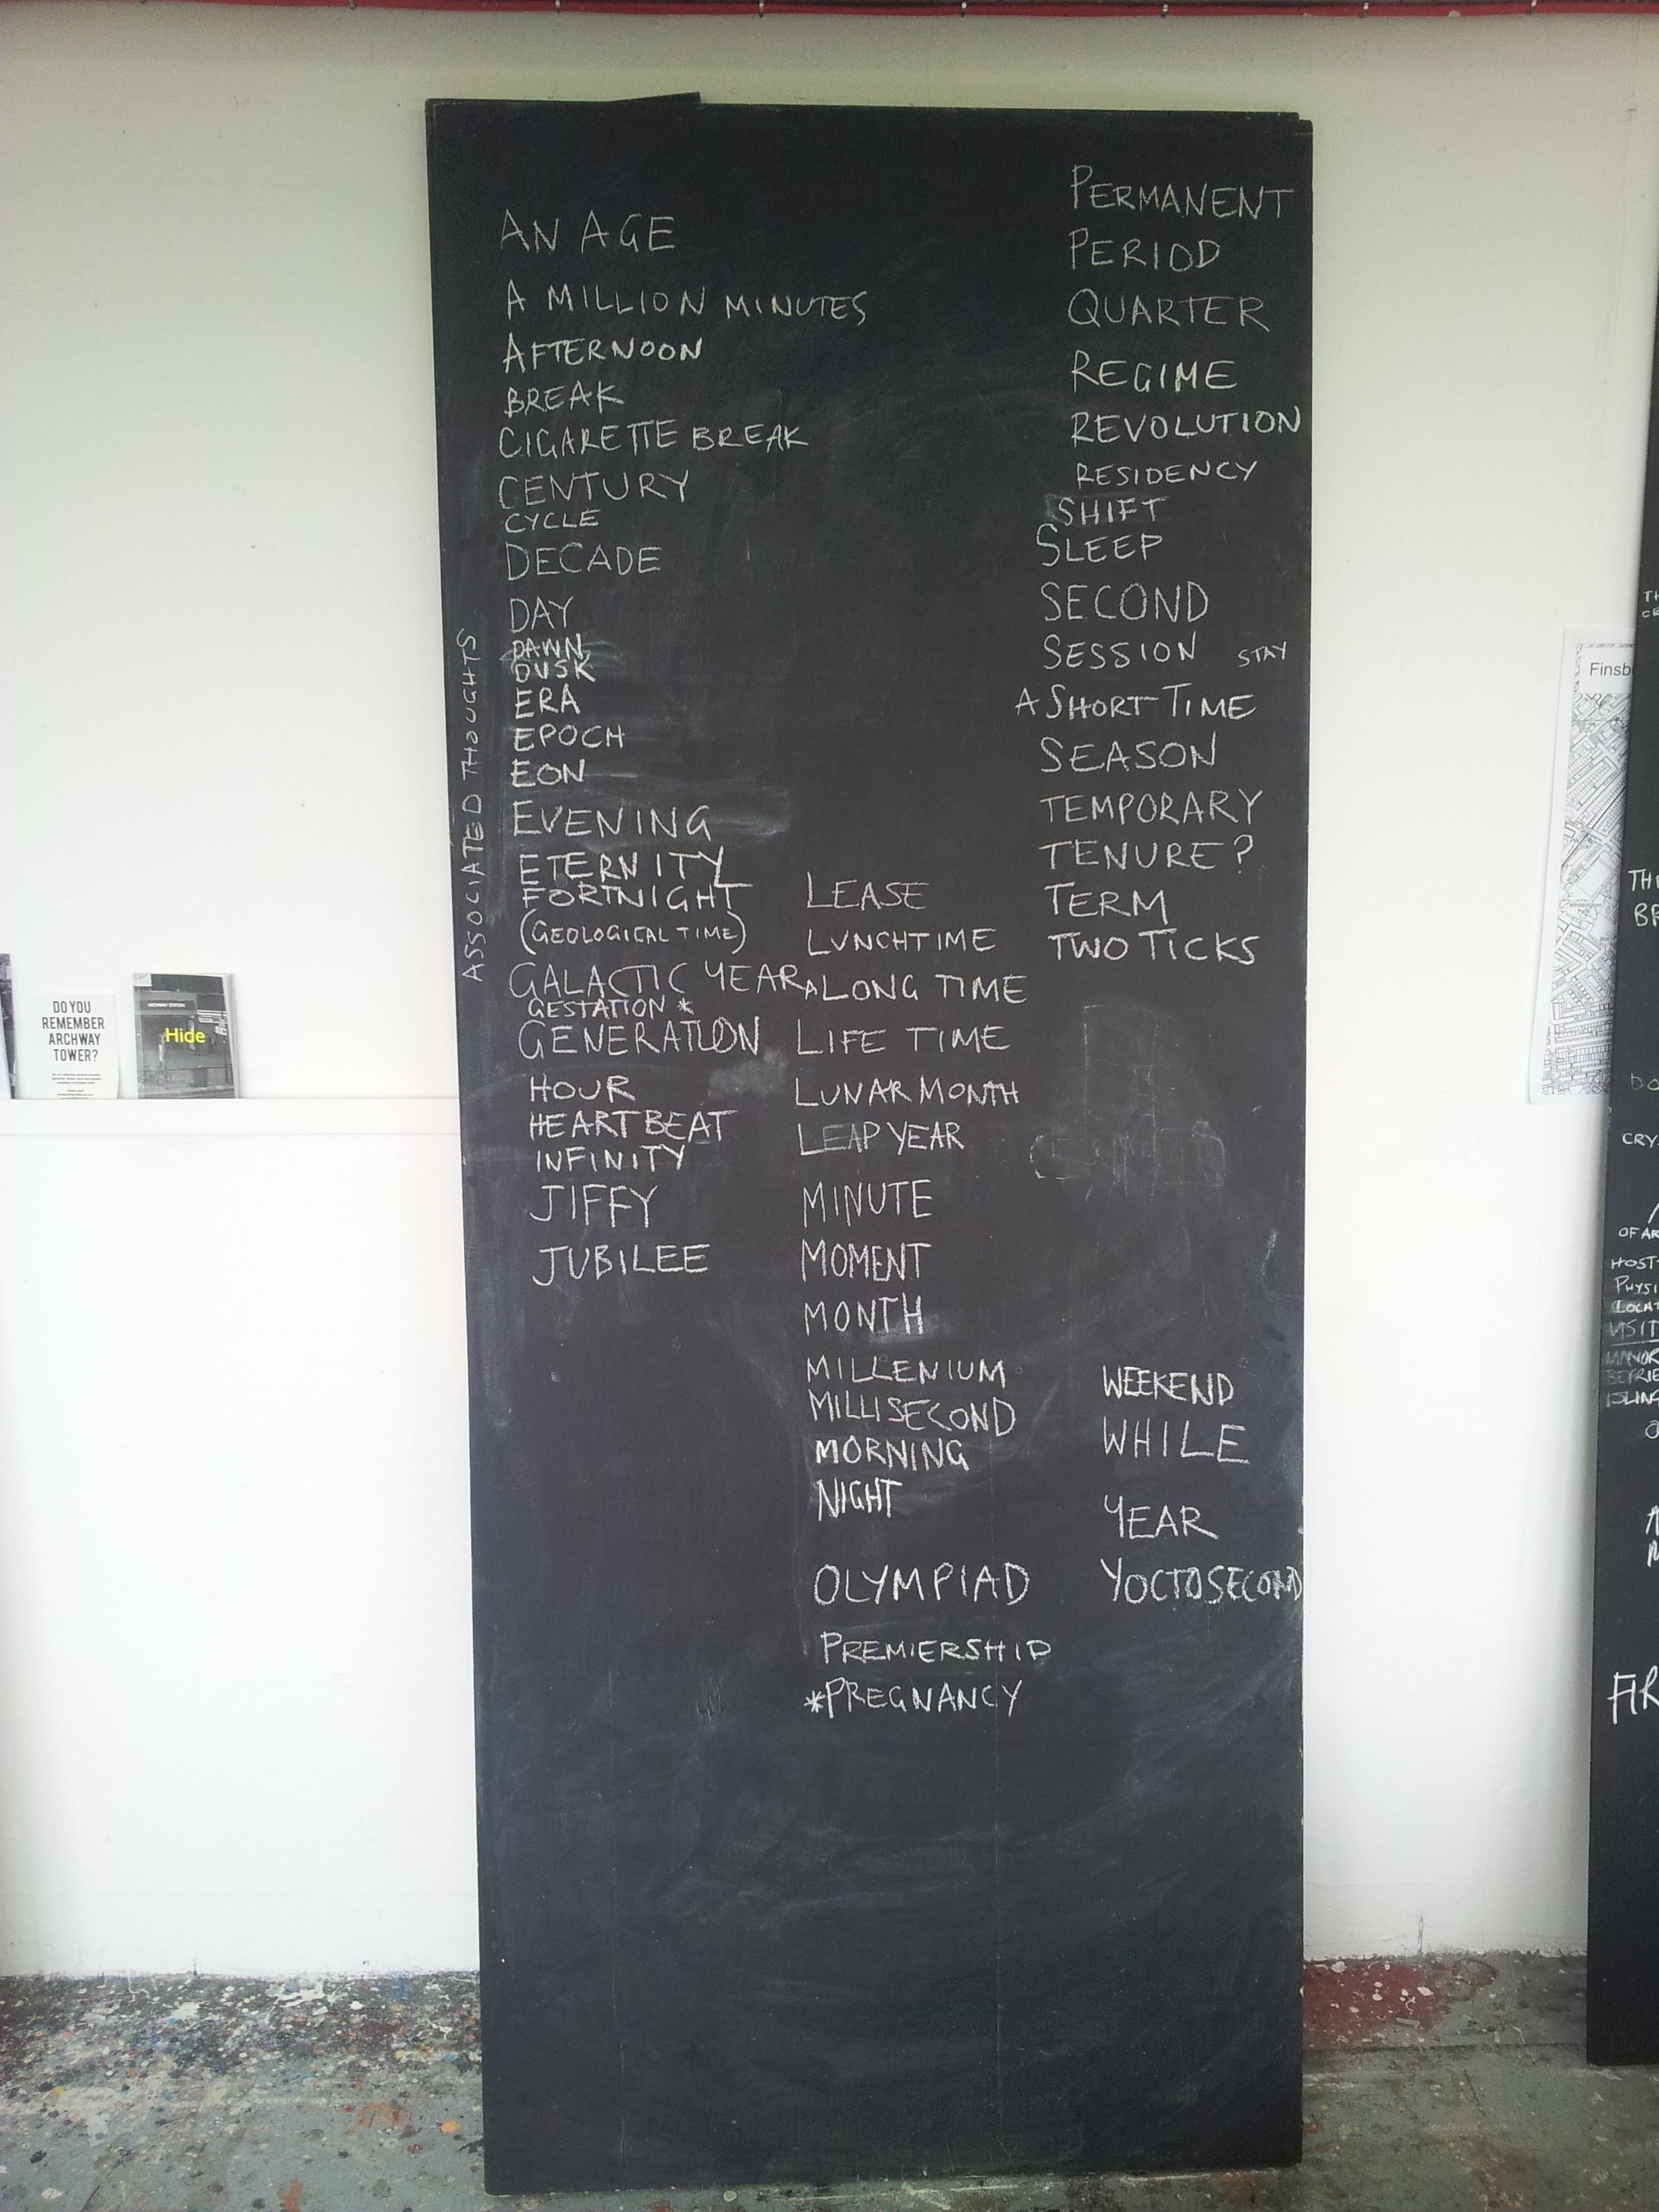 AN AGE
A MILLION MINUTES
AFTERNOON
BREAK
CIGARETTE BREAK
CENTURY
CYCLE
DECADE
DAY
DAWN
DUSK
ERA
EPOCH
EON
EVENING
ETERNITY
FORTNIGHT
(GEOLOGICAL TIME)
GALACTIC YEAR
GESTATION *
GENERATION
HOUR
HEART BEAT
INFINITY
JIFFY
JUBILEE
ASSOCIATED THOUGHTS
LEASE
LUNCHTIME
A LONG TIME
LIFE TIME
LUNAR MONTH
LEAP YEAR
MINUTE
MOMENT
MONTH
MILLENIUM
MILLISECOND
MORNING
NIGHT
OLYMPIAD
PREMIERSHIP
*PREGNANCY
PERMANENT
PERIOD
QUARTER
REGIME
REVOLUTION
RESIDENCY
SHIFT
SLEEP
SECOND
SESSION STAY
A SHORT TIME
SEASON
TEMPORARY
TENURE?
TERM
TWO TICKS
WEEKEND
WHILE
YEAR
YOCTOSECOND
DO YOU
REMEMBER
ARCHWAY
TOWER?
ARCHWAY STATION
Hide
Finsb
BR
DO
CRY
OF AR
HOST
PHYSI
LOCAT
VISIT
MANOR
BEFRIE
ISLING
FIR